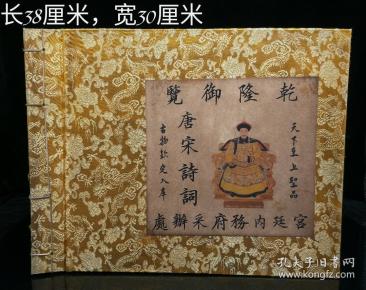 长38厘米，宽30厘米
乾隆御覽
天下至上聖品
唐宋詩詞
古物欽定入庫
宮廷內務府采辦處
孔夫子旧书网
www.kongfz.com